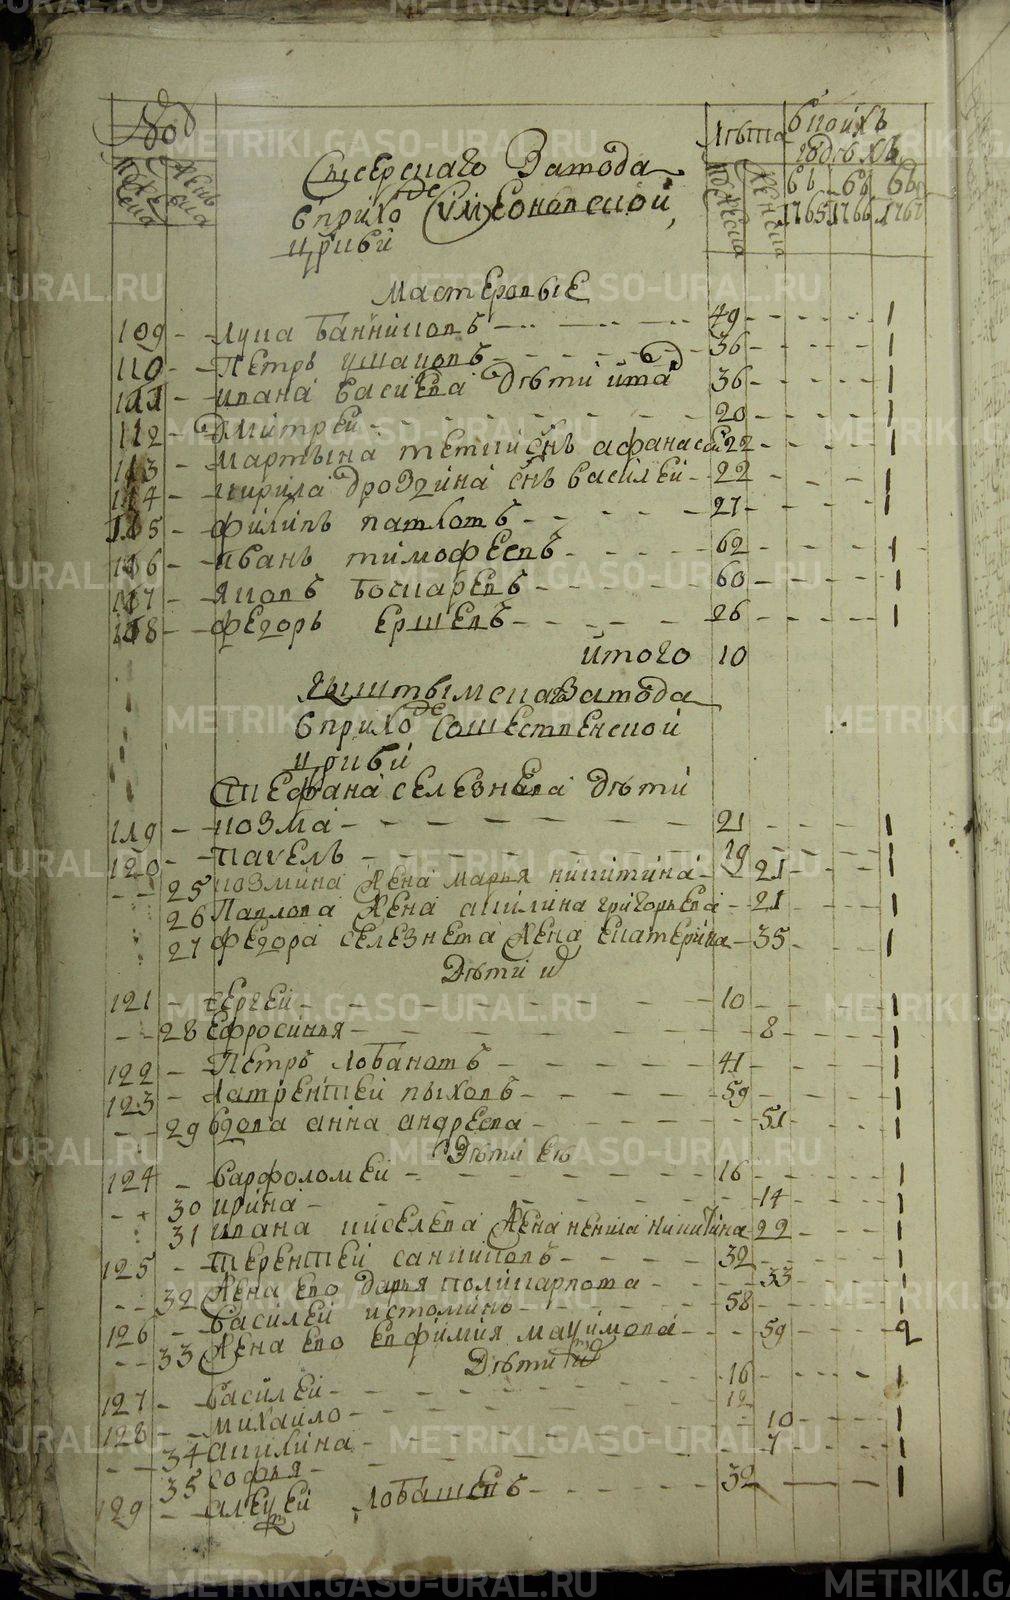 METRIKI.GASO-URAL.RU
№д
мужеска
женска
лѣта
мужеска
женска
в коихъ
годѣхъ
въ 1765
въ 1766
въ 1767
Сысерскаго Завода
в приходе Симеоновской
цркви
Мастеровые
109 Лука Банниковъ 49 1
110 Петръ Ушаковъ 36 1
111 Ивана Васильева дѣти 36 1
112 Дмитрей 20 1
113 Мартына снъ афанасей 22 1
114 Кирила Дроздина снъ василей 22 1
115 Филипъ Павловъ 27
116 Иванъ Тимофеевъ 62 1
117 Яковъ Бокаревъ 60 1
118 Федоръ Ершевъ 26 1
итого 10
Кыштымска Завода
в приходе Сошественской
цркви
Стефана селезнева дѣти
119 Козма 21 1
120 Павелъ 19 1
25 Козмина жена марья никитина 21
26 Павлова жена акилина григорьева 21 1
27 Федора селезнева жена екатерина 35 1
Дѣти их
121 Сергей 10 1
28 Ефросинья 8 1
122 Петръ Лобановъ 41 1
123 Лаврентей Пыховъ 59 1
29 вдова анна андреева 51 1
Дѣти ея
124 Варфоломей 16 1
30 Ирина 14 1
31 Ивана киселева жена ненила никитина 22 1
125 Терентей санниковъ 32 1
32 Жена ево дарья поликарпова 33 1
126 Василей истоминъ 58 1
33 Жена ево евфимия маѯимова 59 2
Дѣти их
127 Василей 16 1
128 Михайло 12
34 Акилина 10 1
35 Софья 7 1
129 Алеѯей Лобашевъ 32 1